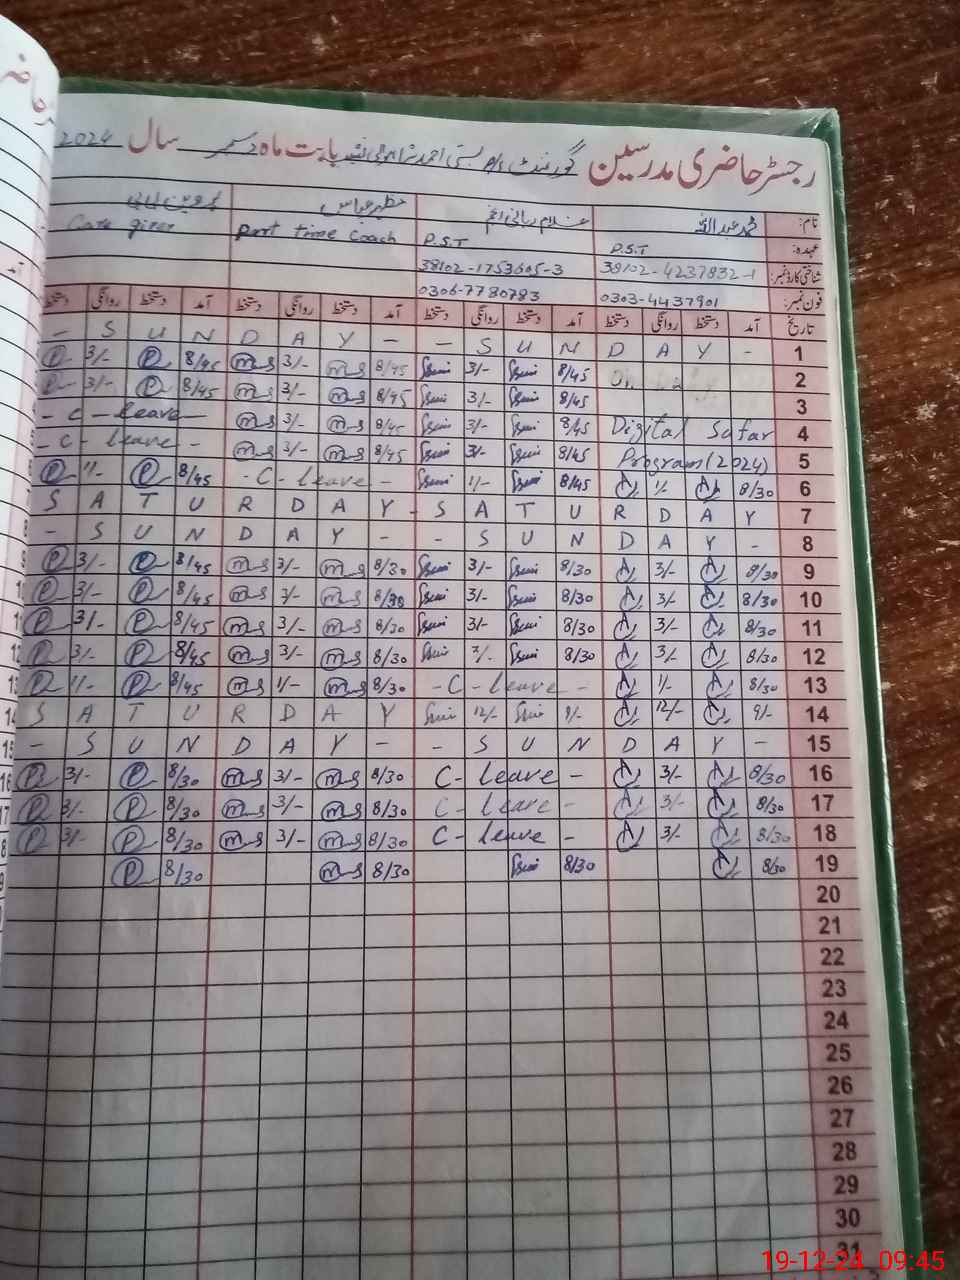 رجسٹر حاضری مدرسین گورنمنٹ P/S بستی احمد بابت ماہ دسمبر سال 2024
نام: محمد عبداللہ غلام ربانی مظہر عباس
عہدہ: P.S.T P.S.T part time Coach Care giver
شناختی کارڈ نمبر: 38102-4237832-1 38102-1753605-3
فون نمبر: 0303-4437901 0306-7780783
تاریخ آمد دستخط روانگی دستخط آمد دستخط روانگی دستخط آمد دستخط روانگی دستخط آمد دستخط روانگی دستخط
- S U N D A Y - - S U N D A Y - 1
P 3/- P 8/45 ms 3/- ms 8/45 3/- 8/45 2
P 3/- P 8/45 ms 3/- ms 8/45 3/- 8/45 3
- C - leave - ms 3/- ms 8/45 3/- 8/45 Digital Safar 4
- C - leave - ms 3/- ms 8/45 3/- 8/45 Program (2024) 5
P 1/- P 8/45 - C - leave - 1/- 8/45 A 1/- A 8/30 6
S A T U R D A Y - S A T U R D A Y 7
- S U N D A Y - - S U N D A Y - 8
P 3/- P 8/45 ms 3/- ms 8/30 3/- 8/30 A 3/- A 8/30 9
P 3/- P 8/45 ms 3/- ms 8/30 3/- 8/30 A 3/- A 8/30 10
P 3/- P 8/45 ms 3/- ms 8/30 3/- 8/30 A 3/- A 8/30 11
P 3/- P 8/45 ms 3/- ms 8/30 3/- 8/30 A 3/- A 8/30 12
P 1/- P 8/45 ms 1/- ms 8/30 - C - leave - A 1/- A 8/30 13
S A T U R D A Y 12/- 9/- A 12/- A 9/- 14
- S U N D A Y - - S U N D A Y - 15
P 3/- P 8/30 ms 3/- ms 8/30 C - leave - A 3/- A 8/30 16
P 3/- P 8/30 ms 3/- ms 8/30 C - leave - A 3/- A 8/30 17
P 3/- P 8/30 ms 3/- ms 8/30 C - leave - A 3/- A 8/30 18
P 8/30 ms 8/30 8/30 A 8/30 19
20
21
22
23
24
25
26
27
28
29
30
31
19-12-24 09:45